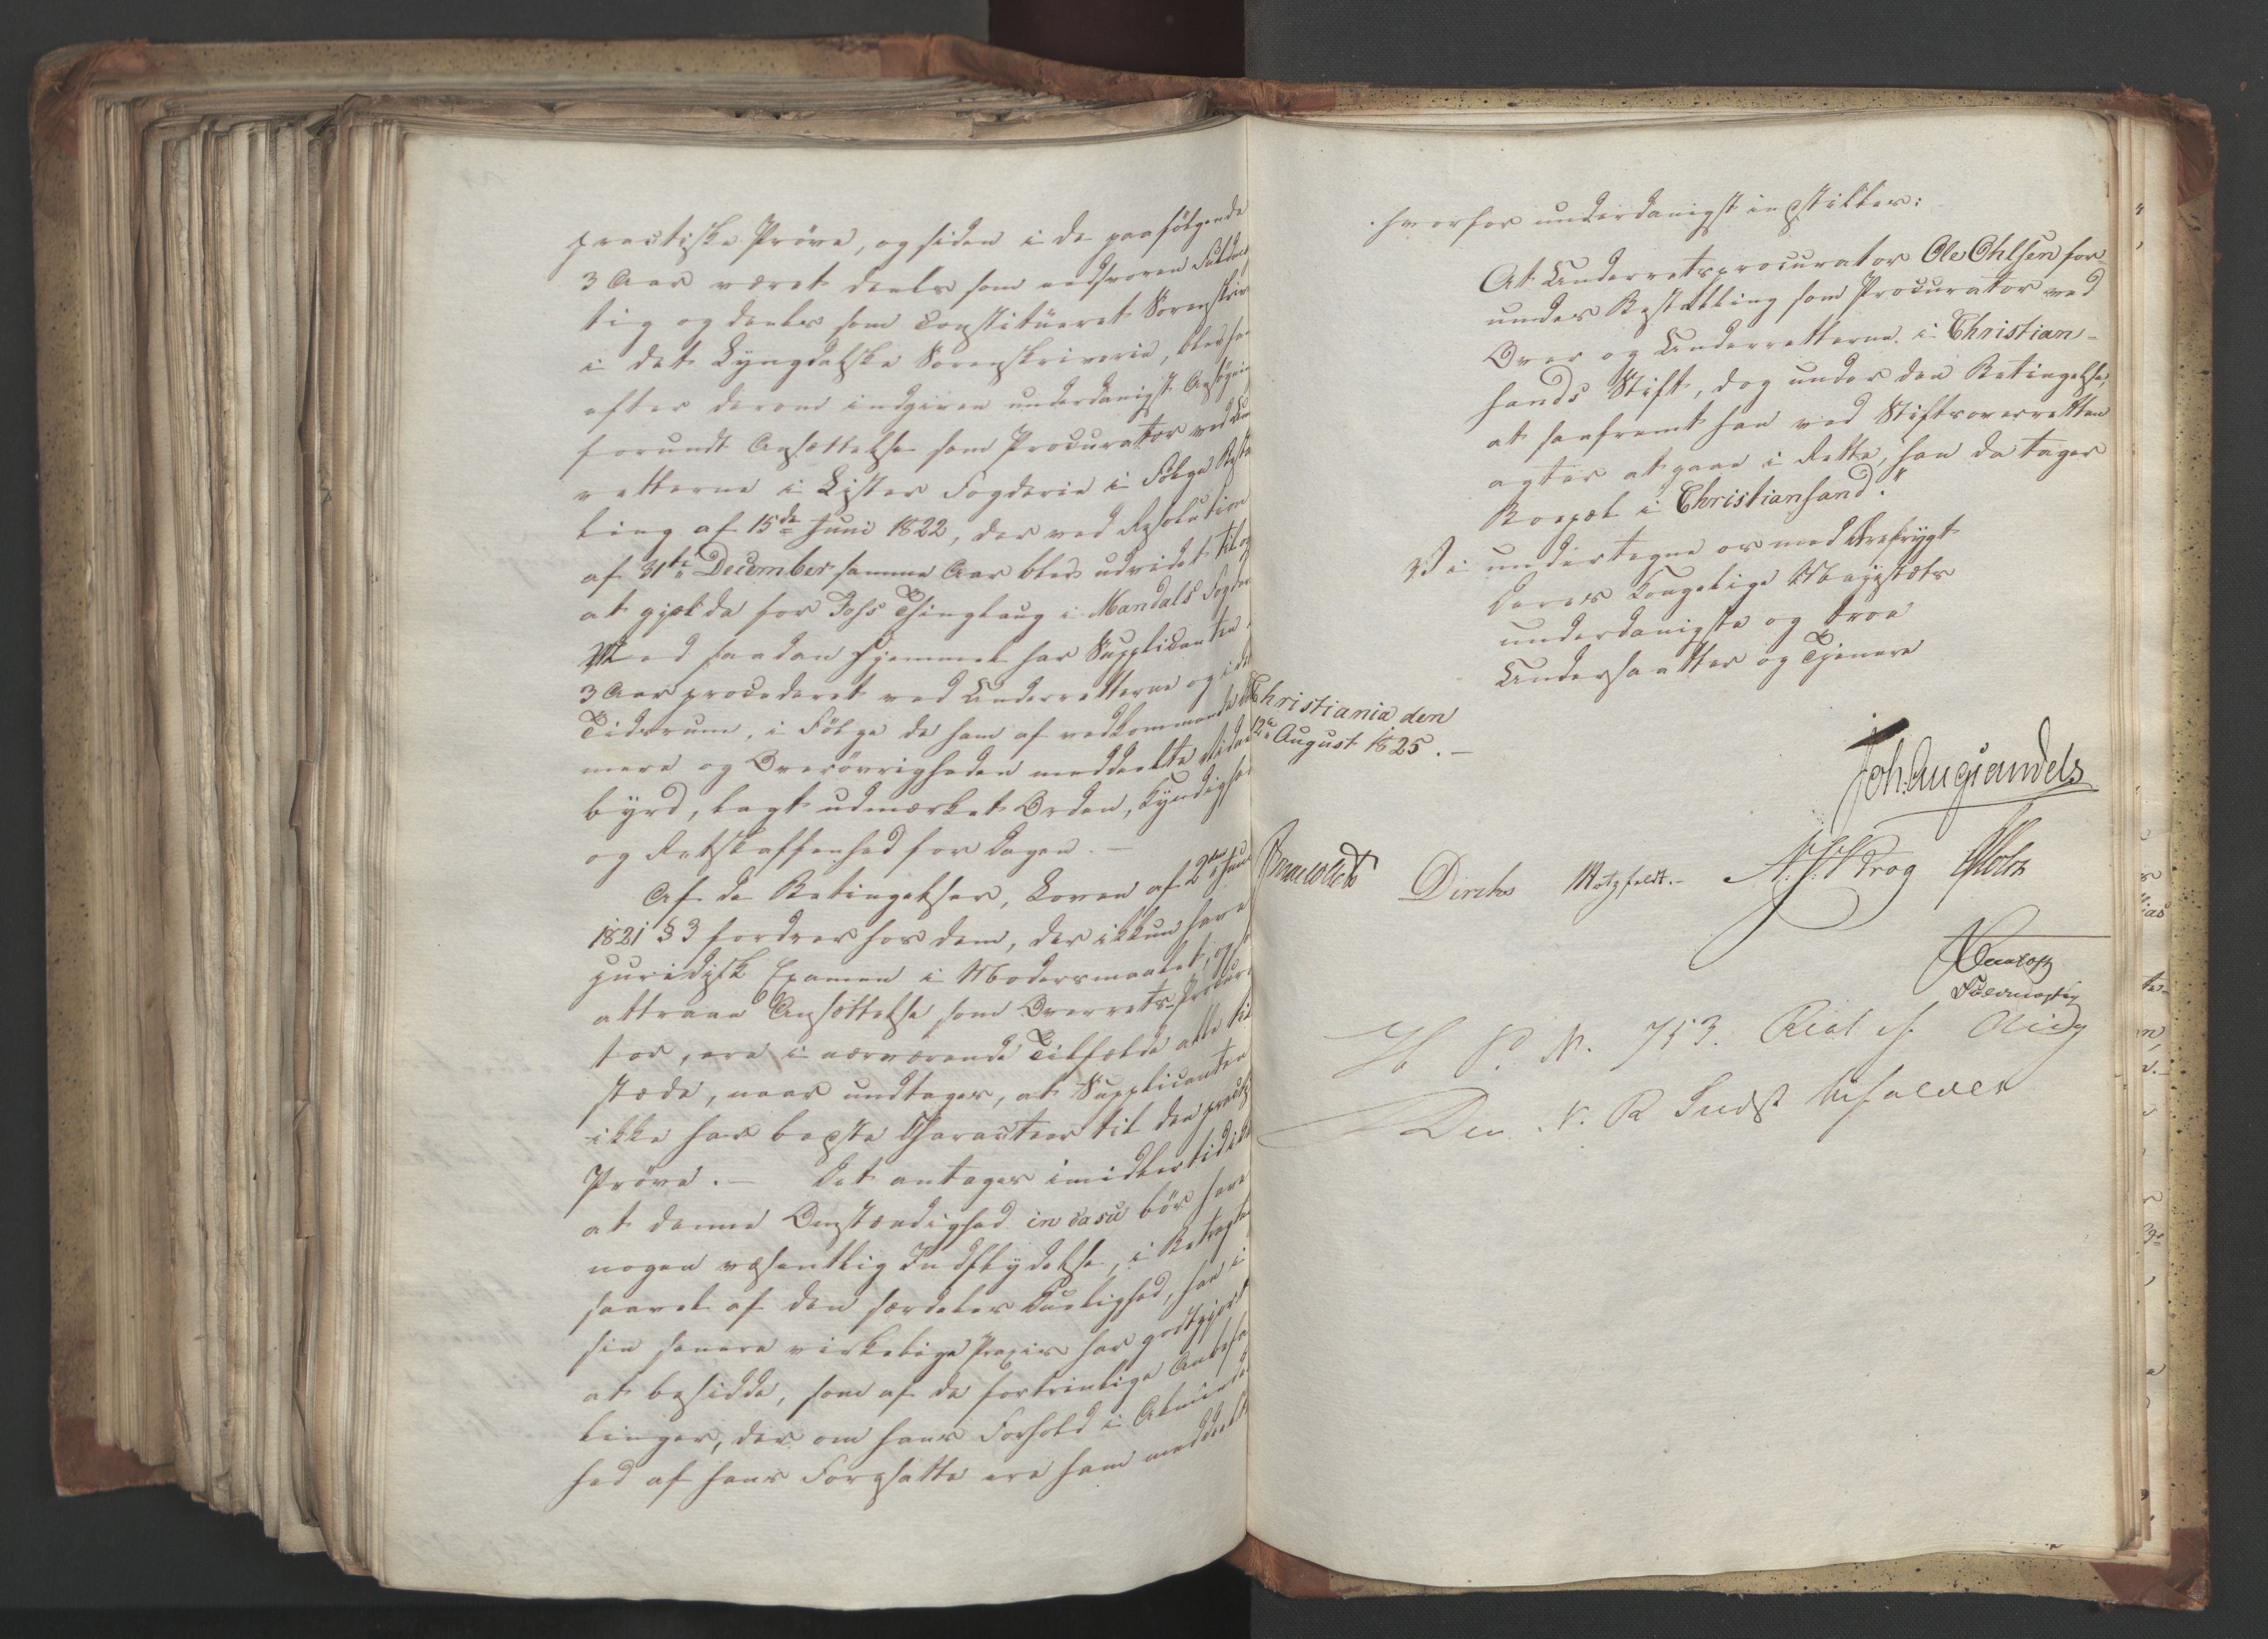 practiske Prøve, og siden i de paafølgende
3 Aar været deels som eedsvoren Fuldmæg
tig og deels som Constitueret Sorenskriv
i det Lyngdalske Sorenskriverie, blev han
efter derom indgiven underdanigst Ansøgni
forundt Ansættelse som Procurator ved Un
retterne i Lister Fogderie i Følge Bestal
ling af 15de Juni 1822, der ved Resolution
af 31te December samme Aar blev udvidet til og
at gjelde for Thinglaug i Mandals Fogder
Med saadan Hjemmel har Supplicanten i
3 Aar procederet ved Underretterne og i det
Tidsrum, i Følge de ham af vedkommende
mere og Overøvrigheden meddeelte Vidnes
byrd, lagt udmærket Orden, Kyndighed
og Retskaffenhed for Dagen. —
Af de Betingelser, Loven af 2den Juni
1821 § 3 fordrer hos dem, der ikkun have
juridisk Examen i Modersmaalet, og
attraae Ansættelse som Overrets-Procura
tor, ere i nærværende Tilfælde alle til
stæde, naar undtages, at Supplicanten
ikke har bedste Characteer til den practiske
Prøve. — Det antages imidlertid ikke
at denne Omstændighed in casu bør have
nogen væsentlig Indflydelse, i Betragtn
saavel af den særdeles Duelighed, han i
sin senere virkelige Praxis har godtgjort
at besidde, som af de fortrinlige Anbefa
linger, der om hans Forhold i Almindelig
hed af hans Foresatte ere ham meddeelte
hvorfor underdanigst indstilles:
At Underretsprocurator Ole Ohlsen for-
undes Bestalling som Procurator ved
Over og Underretterne i Christian-
sands Stift, dog under den Betingelse,
at saafremt han ved Stiftsoverretten
agter at gaae i Rette, han da tager
Boepæl i Christiansand."
Vi undertegne os med Ærefrygt
Deres Kongelige Majestæts
underdanigste og troe
Undersaatter og Tjenere
Christiania den
12te August 1825. —
Joh. Aug. Sandels
Diriks Motzfeldt. — Krog Holst
H P. N. 753.
Den N. R Indst bifaldes